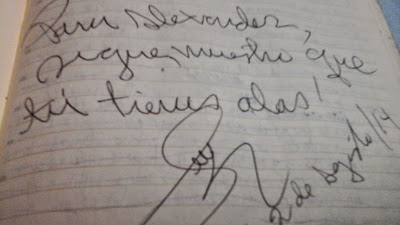 Para Alexander,
sigue, maestro que
tú tienes alas!
2 de Agosto/14